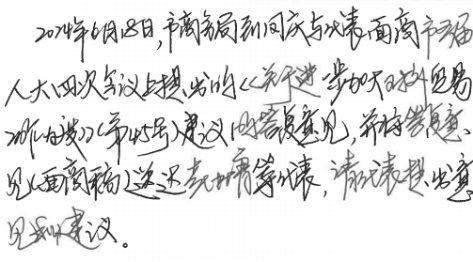 2024年6月18日,市商务局到同庆与代表面商市五届
人大四次会议上提出的《关于进一步加大对外贸易
的建议》(第45号)建议的答复意见,并将答复意
见(面商稿)送达等代表,请代表提出意
见和建议。